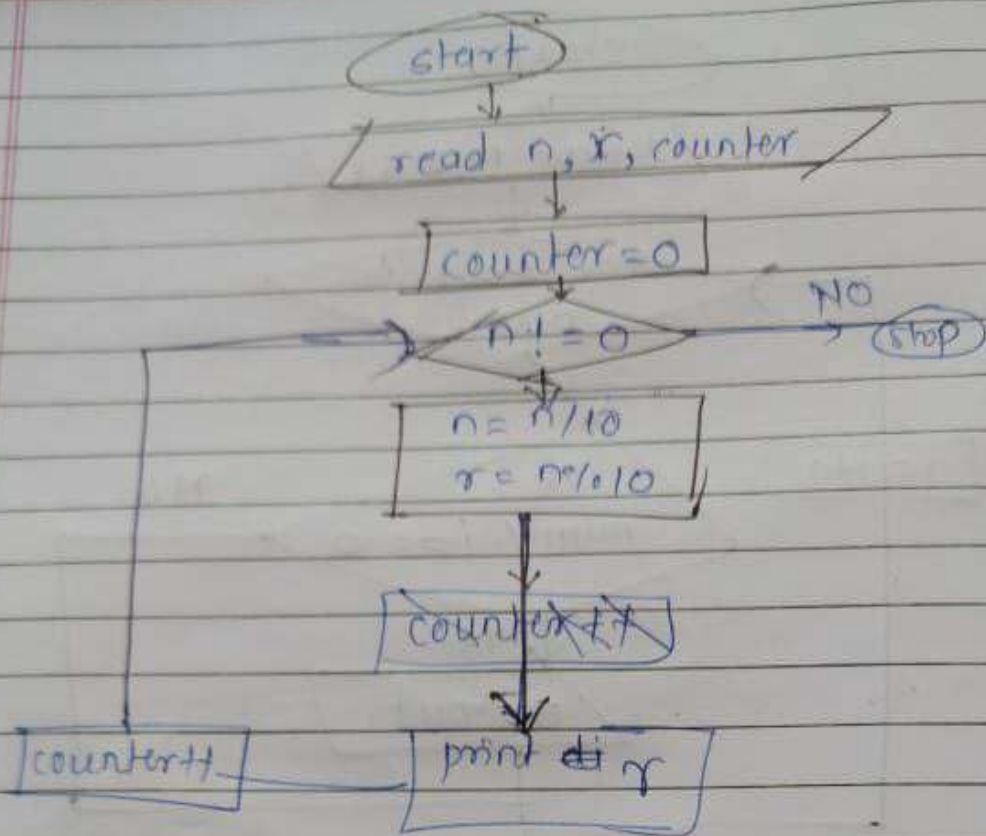 start
read n, r, counter
counter = 0
n != 0
NO
stop
n = n/10
r = n%10
counter++
print r
counter++